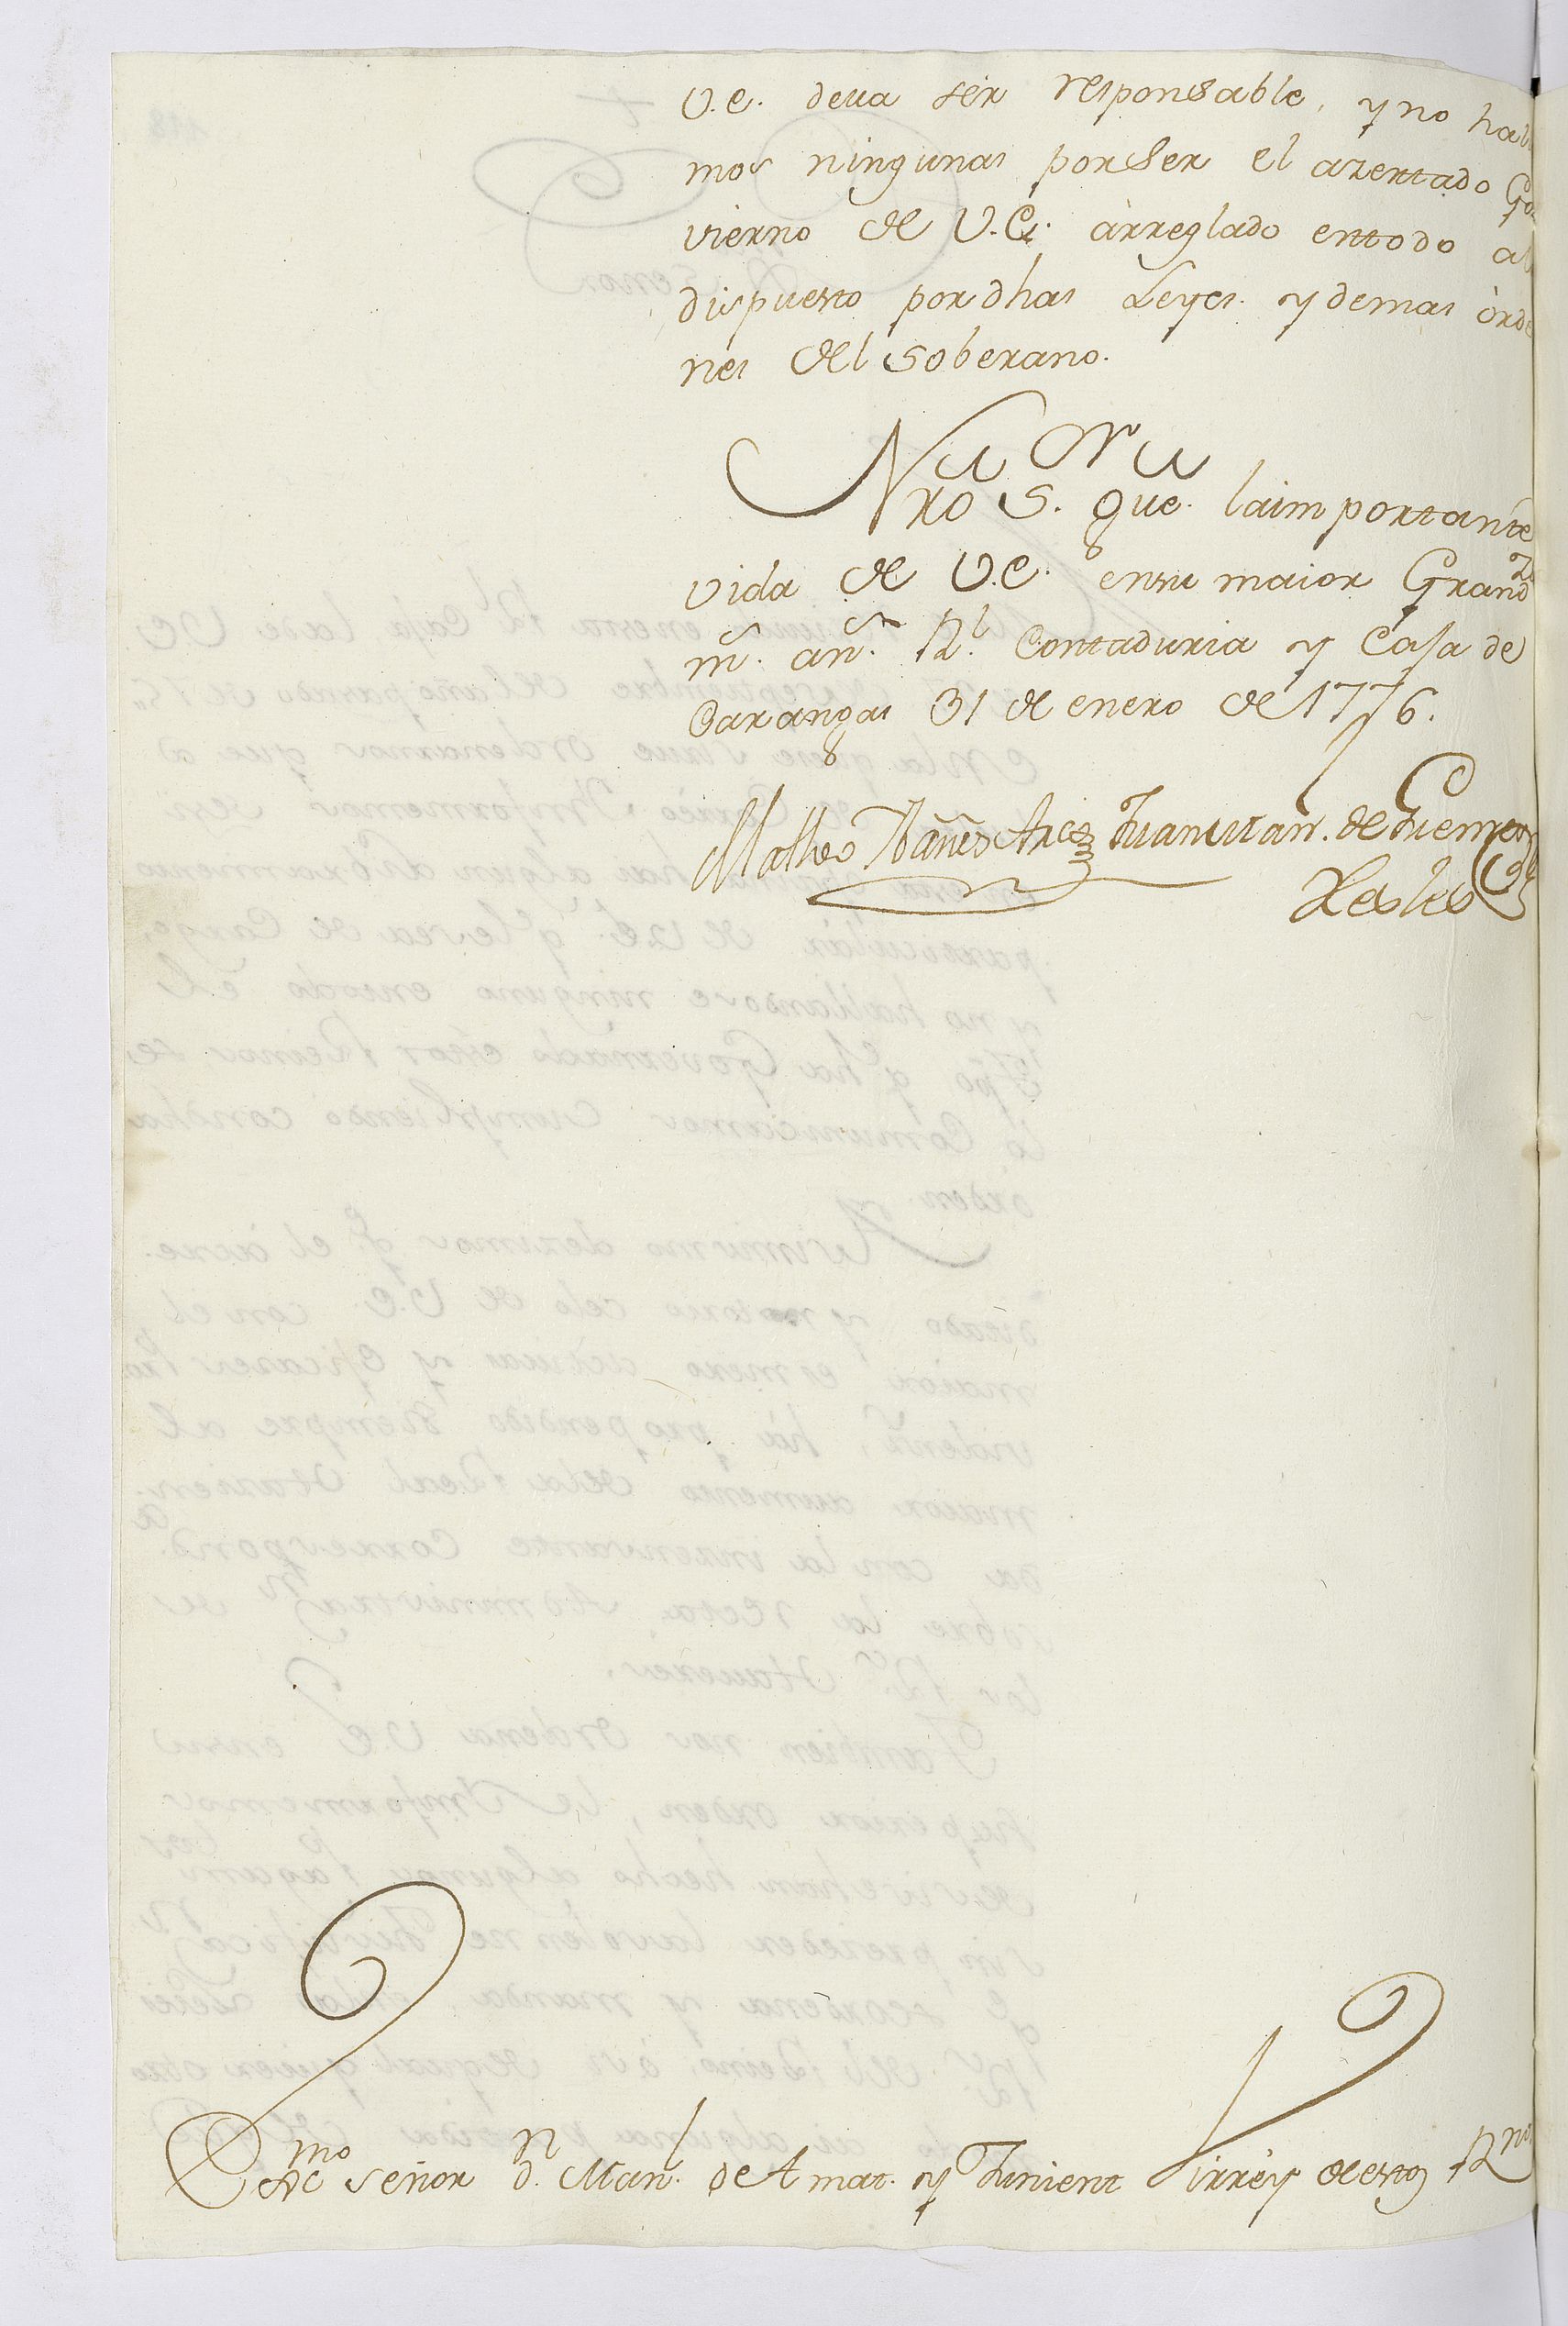 V.e. deua sér responsable, y no hall
mos ningunas por Ser el azertado Go
vierno de V.E. àrreglado en todo al
dispuesto por dhas Leyes y demas òrde
nes del Soberano.
Nro S.or gue. la importante
vida de V.E. en su maior Grand.za
m.s an.s R.l Contaduria y Casa de
Carangas 31 de enero de 1776.
Matheo Ibañes Arco Juan Man. de
Exc.mo señor d.n Man.l de Amat. y Junient Virréy de estos R.nos